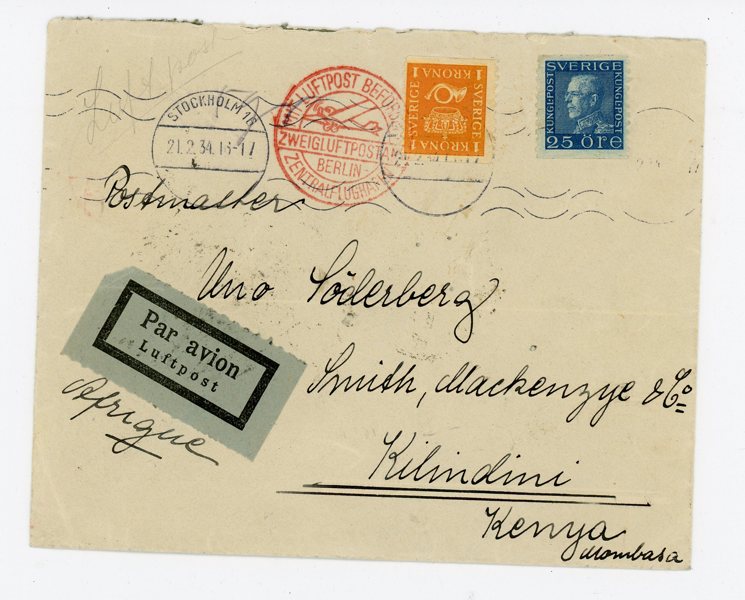 Luftpost
STOCKHOLM 16
21.2.34.16-17
LUFTPOST
ZWEIGLUFTPOSTAMT
BERLIN
ZENTRALFLUGHAFEN
1 KRONA
SVERIGE
SVERIGE
KRONA 1
SVERIGE
KUNGLPOST
KUNGLPOST
25 ÖRE
Postmaster
Uno Söderberg
Par avion
Luftpost
Smith, Mackenzye & Co
Afrique
Kilindini
Kenya
Mombasa